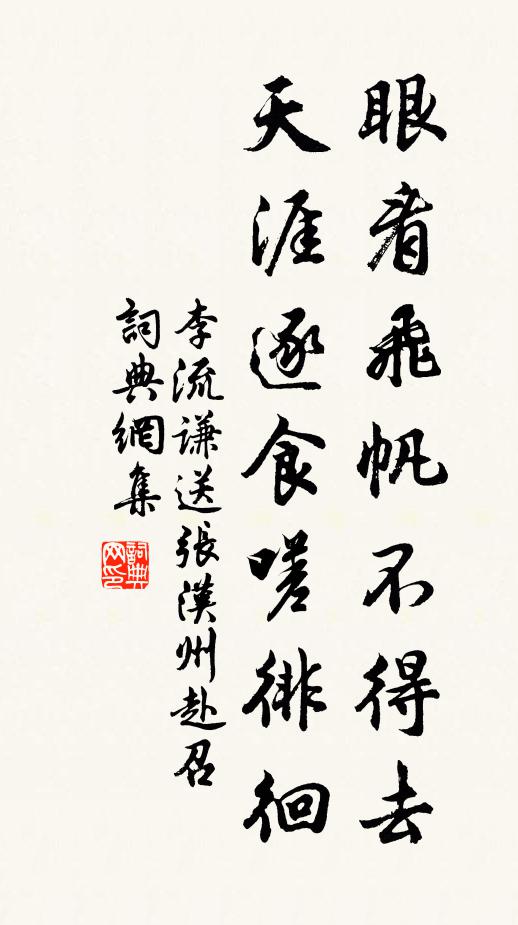 眼看飛帆不得去
天涯逐食嗟徘徊
李流謙送張漢州赴召
詞典網集
詞典网印